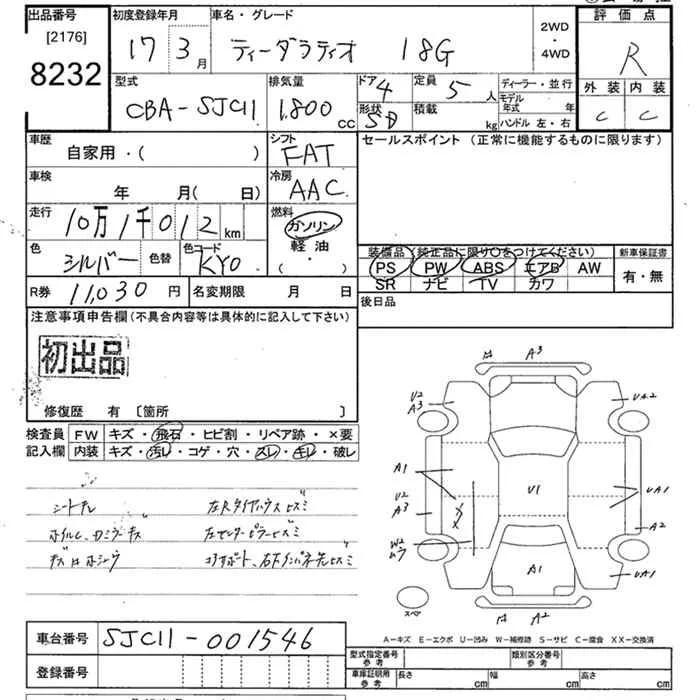 出品番号 初度登録年月 車名・グレード 2WD・4WD 評価点
[2176]
8232
17 3月 ティーダラティオ 18G R
型式 排気量 ドア 4 定員 5人 ディーラー・並行 外装 内装
CBA-SJC11 1,800cc 形状 SD 積載 kg モデル年式 年 C C
ハンドル 左・右
車歴 シフト セールスポイント (正常に機能するものに限ります)
自家用・( ) FAT
車検 冷房
年 月( 日) AAC
走行 10万1千012km 燃料 ガソリン
軽油
( ・ )
色 シルバー 色替 色コード KY0
装備品(純正品に限り○をつけてください) 新車保証書
PS PW ABS エアB AW 有・無
SR ナビ TV カワ
R券 11,030円 名変期限 月 日 後日品
注意事項申告欄(不具合内容等は具体的に記入して下さい)
初出品
修復歴 有 〔箇所 〕
検査員 FW キズ・飛石・ヒビ割・リペア跡・×要
記入欄 内装 キズ・汚レ・コゲ・穴・スレ・キレ・破レ
A3
U2
A3
UA2
A1
U2
A3
U1
UA1
A2
W2
A1
UA1
スペア
A2
A-キズ E-エクボ U-凹み W-補修跡 S-サビ C-腐食 XX-交換済
車台番号 SJC11-001546
登録番号
型式指定番号 参考 類別区分番号 参考
車庫証明用 参考 長さ cm 幅 cm 高さ cm